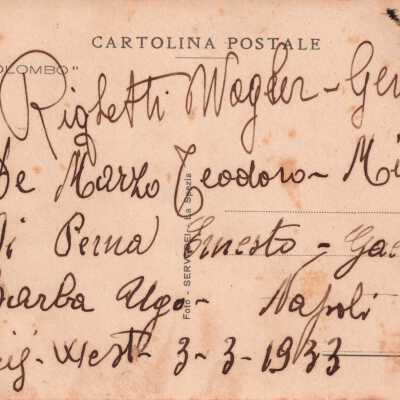 CARTOLINA POSTALE
OLOMBO"
Righetti Wogler - Gen
De Marzo Teodoro - Mi
Di Perna Ernesto - Gae
Barba Ugo - Napoli
West - 3-3-1933
Foto - SERVADEI - La Spezia